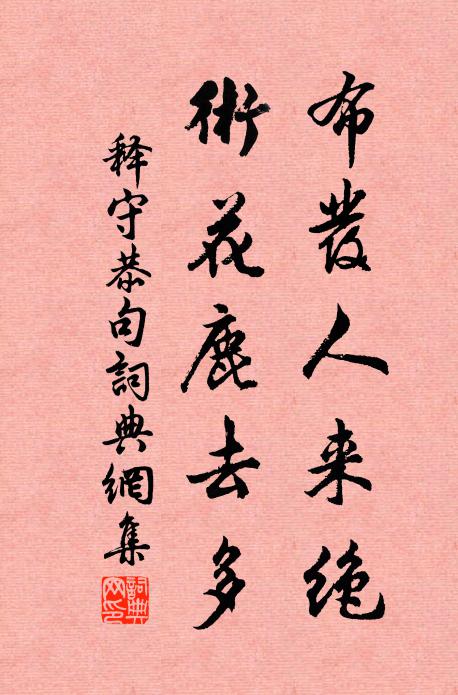 布發人来绝
術花鹿去多
释守恭句詞典網集
詞典网印